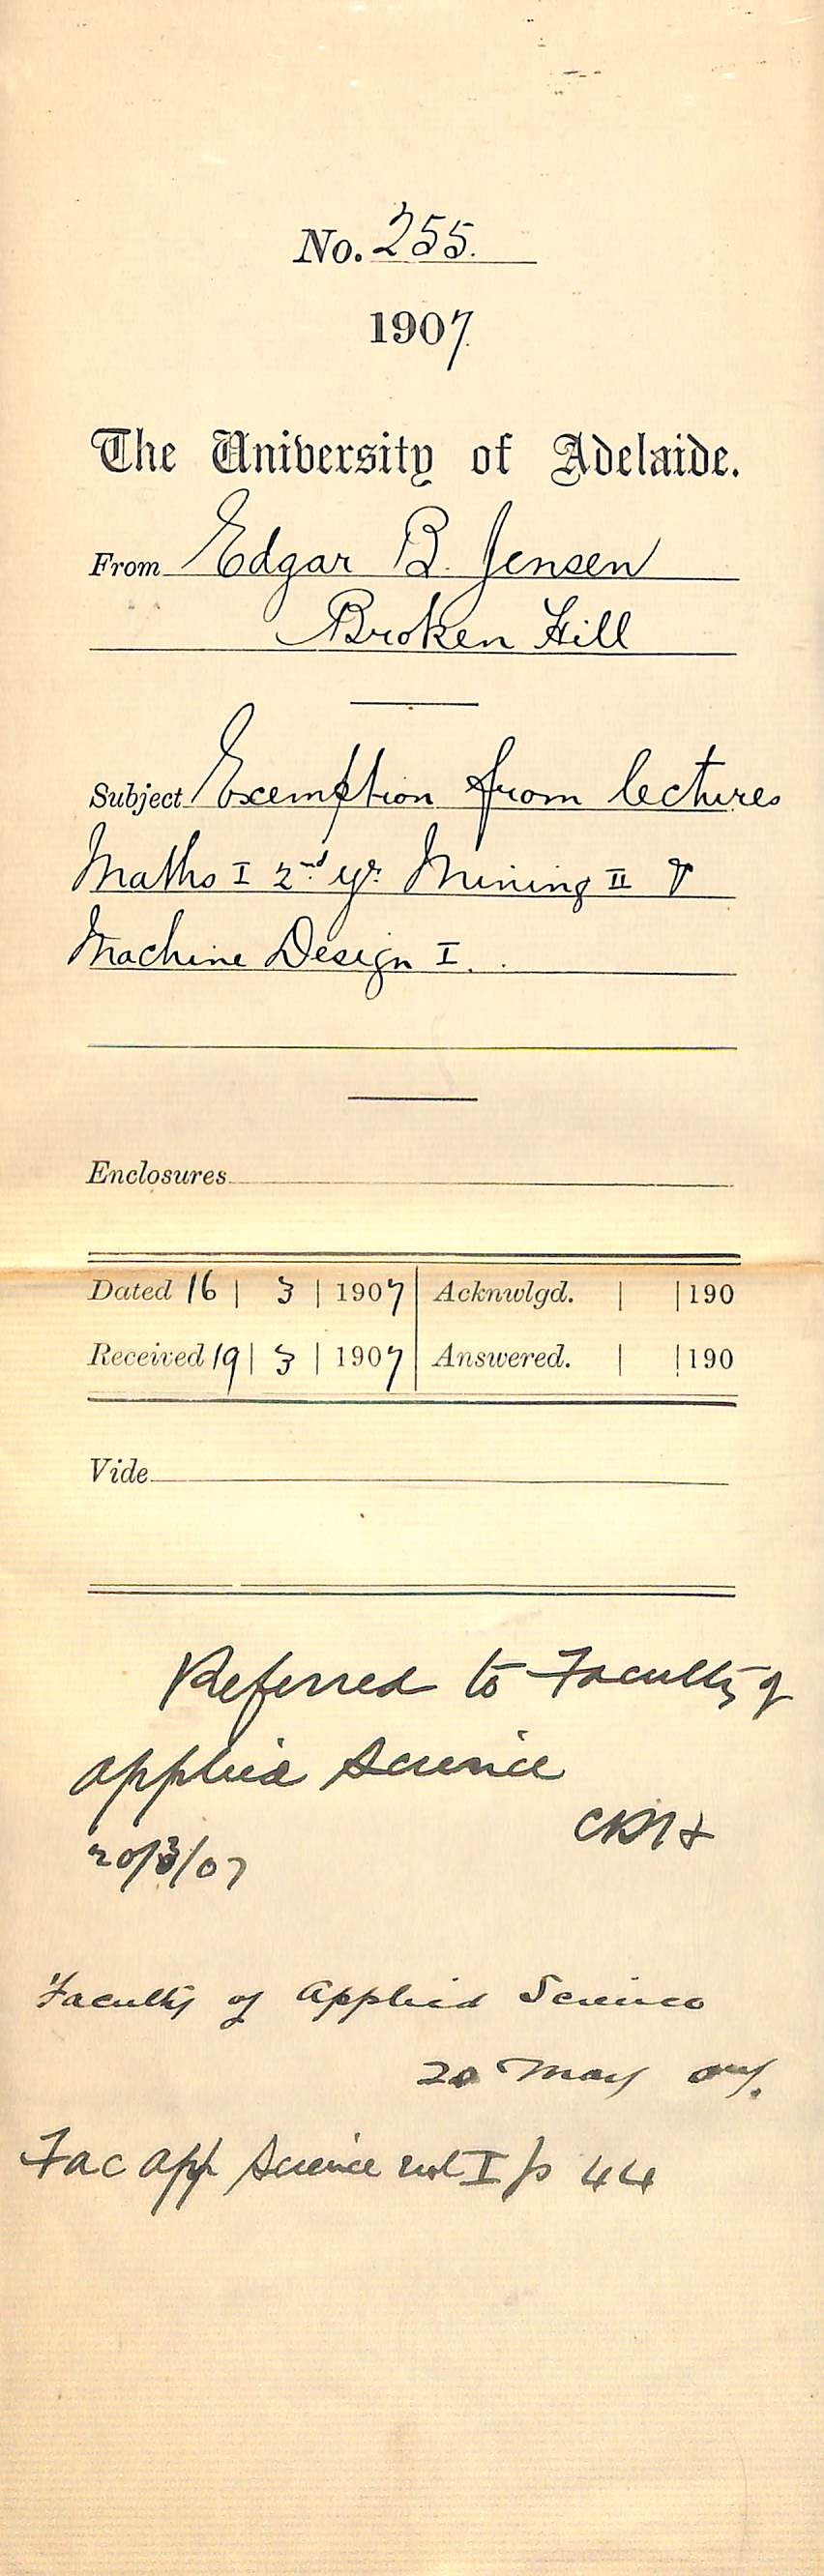 No. 255.
1907
The University of Adelaide.
From Edgar B. Jensen
Broken Hill
Subject Exemption from lectures
Maths I 2nd yr. Mining II &
Machine Design I.
Enclosures
Dated 16 | 3 | 1907 | Acknwlgd. | | 190
Received 19 | 3 | 1907 | Answered. | | 190
Vide
Referred to Faculty of
Applied Science
20/3/07
Faculty of Applied Science
20 May 07.
Fac App Science vol I p 44